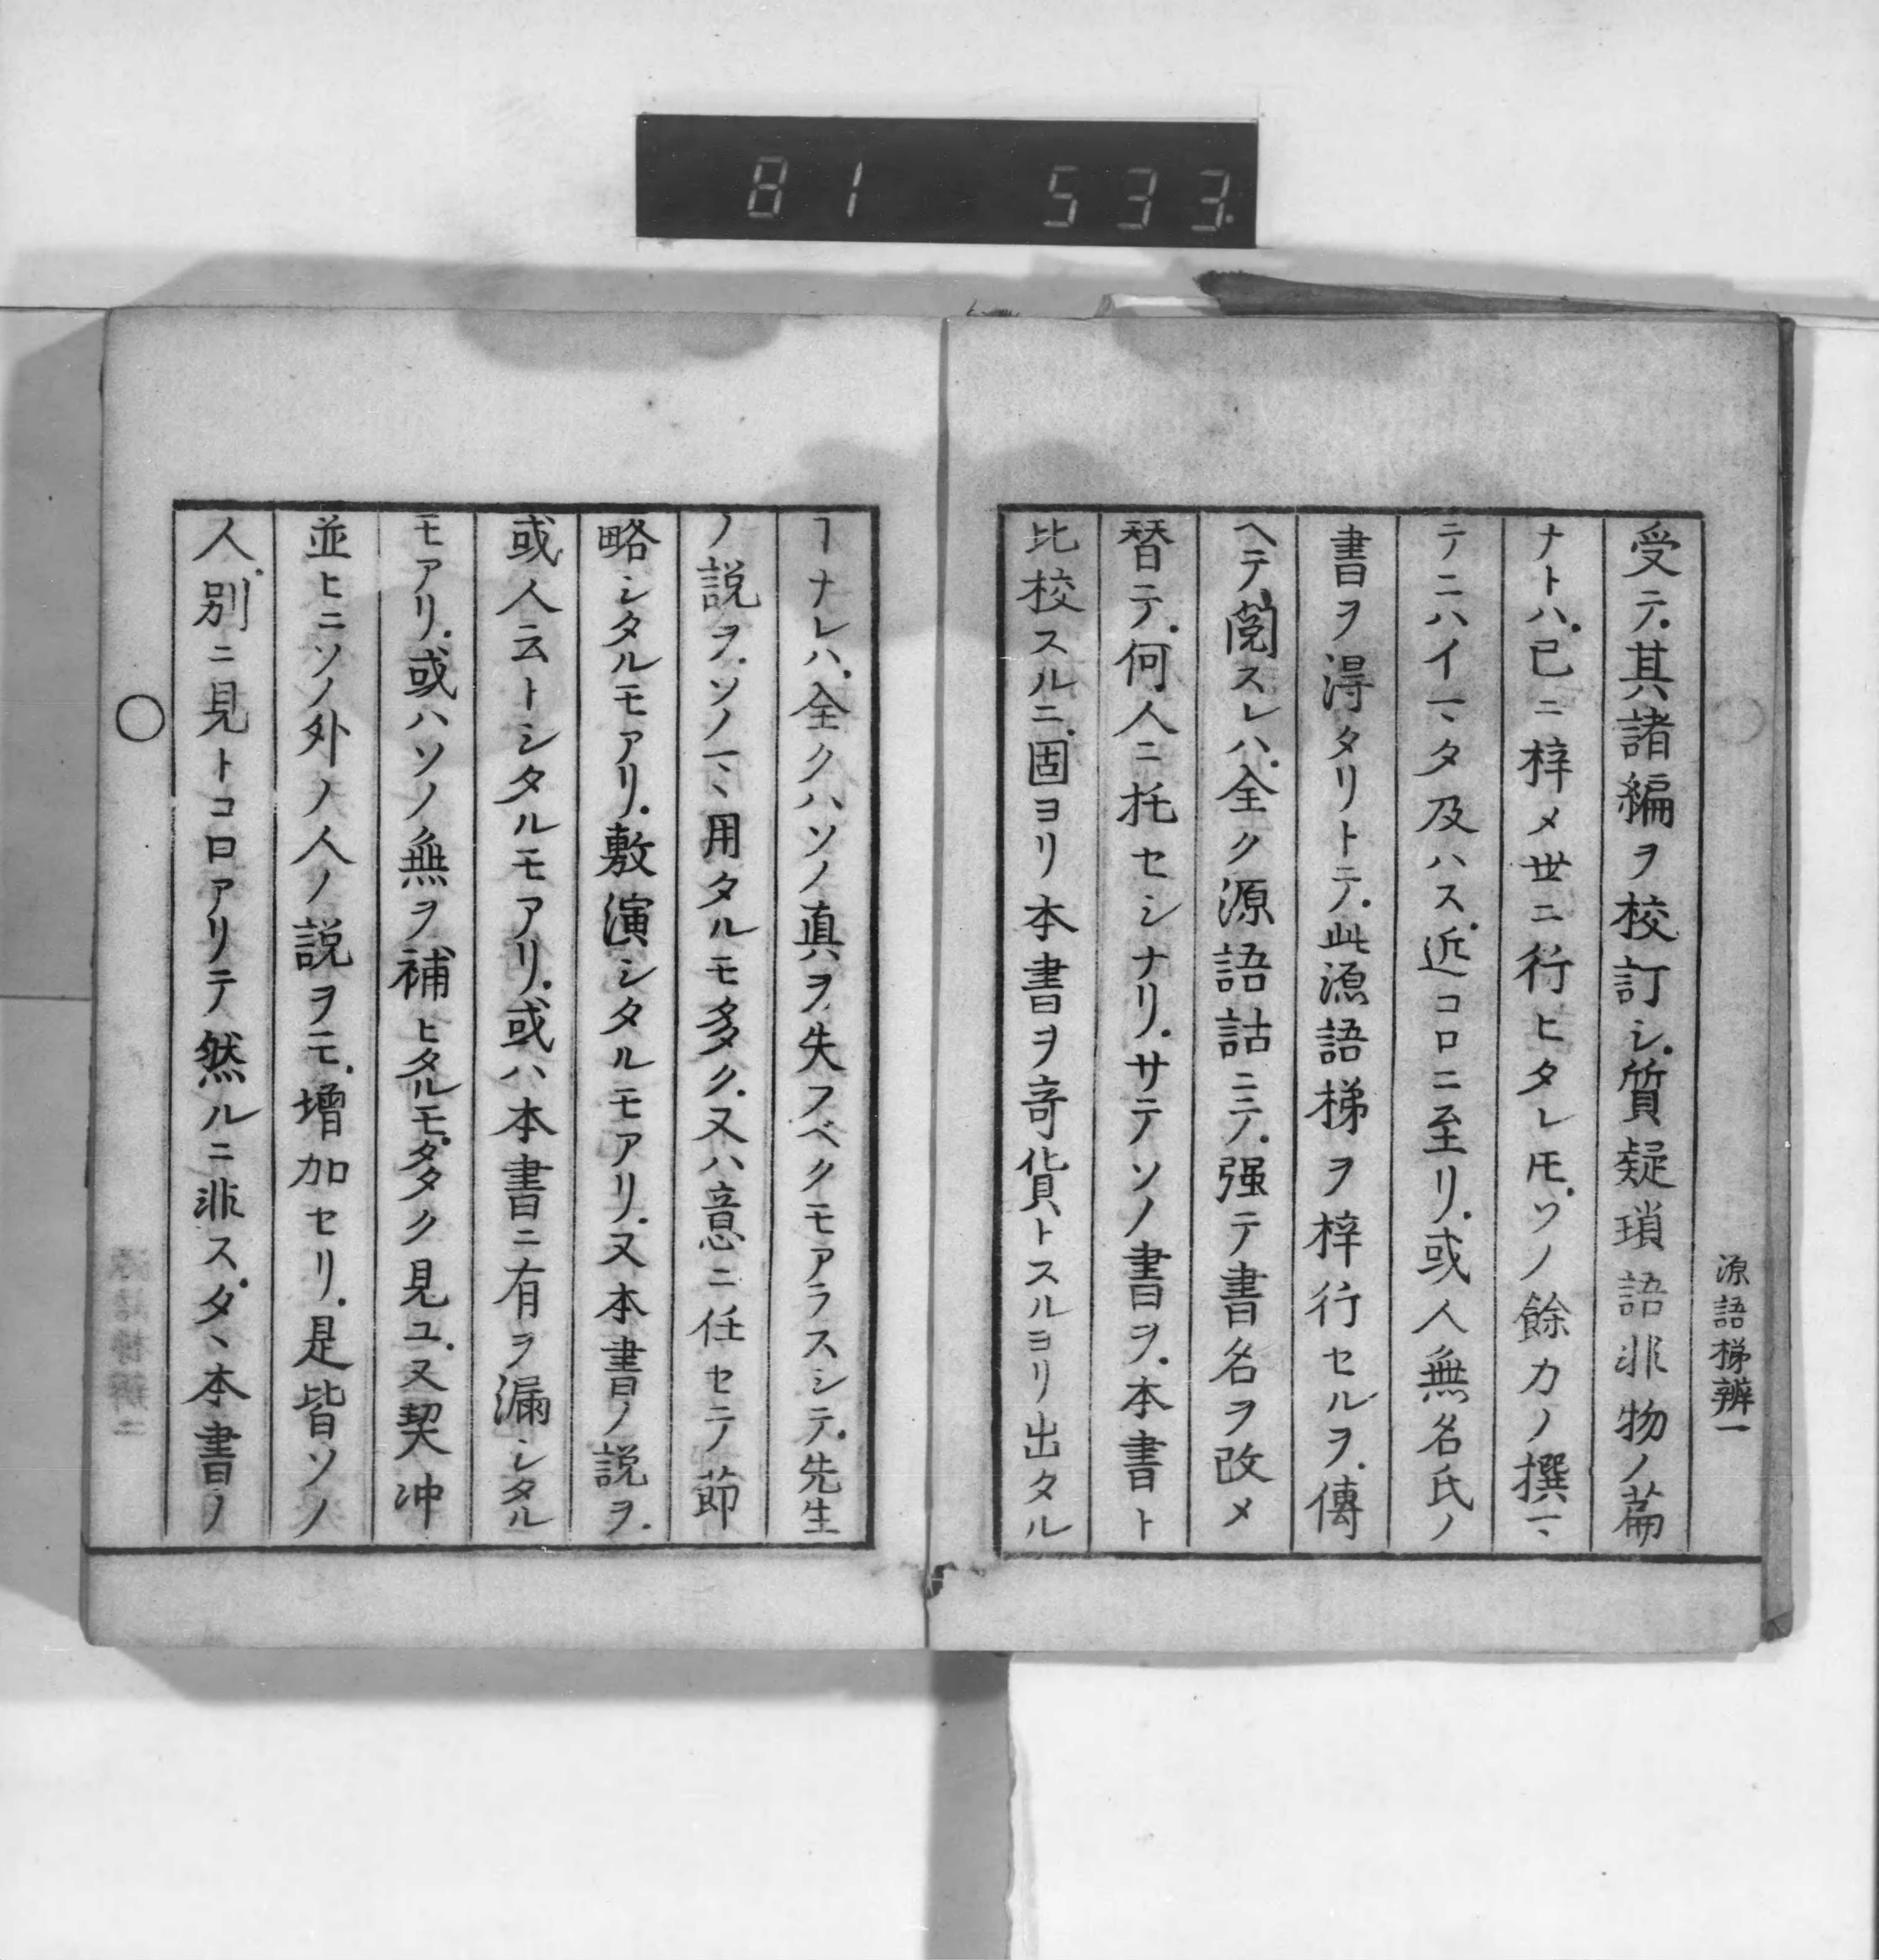 81 533
受テ.其諸編ヲ校訂シ.質疑瑣語非物ノ萹
ナトハ.已ニ梓メ世ニ行ヒタレ𪜈.ソノ餘カノ撰一ヽ
テニハイマヽタ及ハス.近コロニ至リ.或人無名氏ノ
書ヲ淂タリトテ.此源語梯ヲ梓行セルヲ.傳
ヘテ閲スレハ.全ク源語詁ニテ.强テ書名ヲ改メ
替テ.何人ニ托セシナリ.サテソノ書ヲ.本書ト
比校スルニ.固ヨリ本書ヲ竒貨トスルヨリ出タル
源語梯辨一
ヿナレハ.全クハソノ真ヲ失フベクモアラスシテ.先生
ノ説ヲ.ソノマヽ用タルモ多ク.又ハ意ニ任セテ節
略シタルモアリ.敷演シタルモアリ.又本書ノ説ヲ.
或人云トシタルモアリ.或ハ本書ニ有ヲ漏シタル
モアリ.或ハソノ無ヲ補ヒタルモ.多タク見ユ.又契沖
並ヒニソノ外ノ人ノ説ヲモ.増加セリ.是皆ソノ
人.別ニ見トコロアリテ然ルニ非ス.タヽ本書ノ